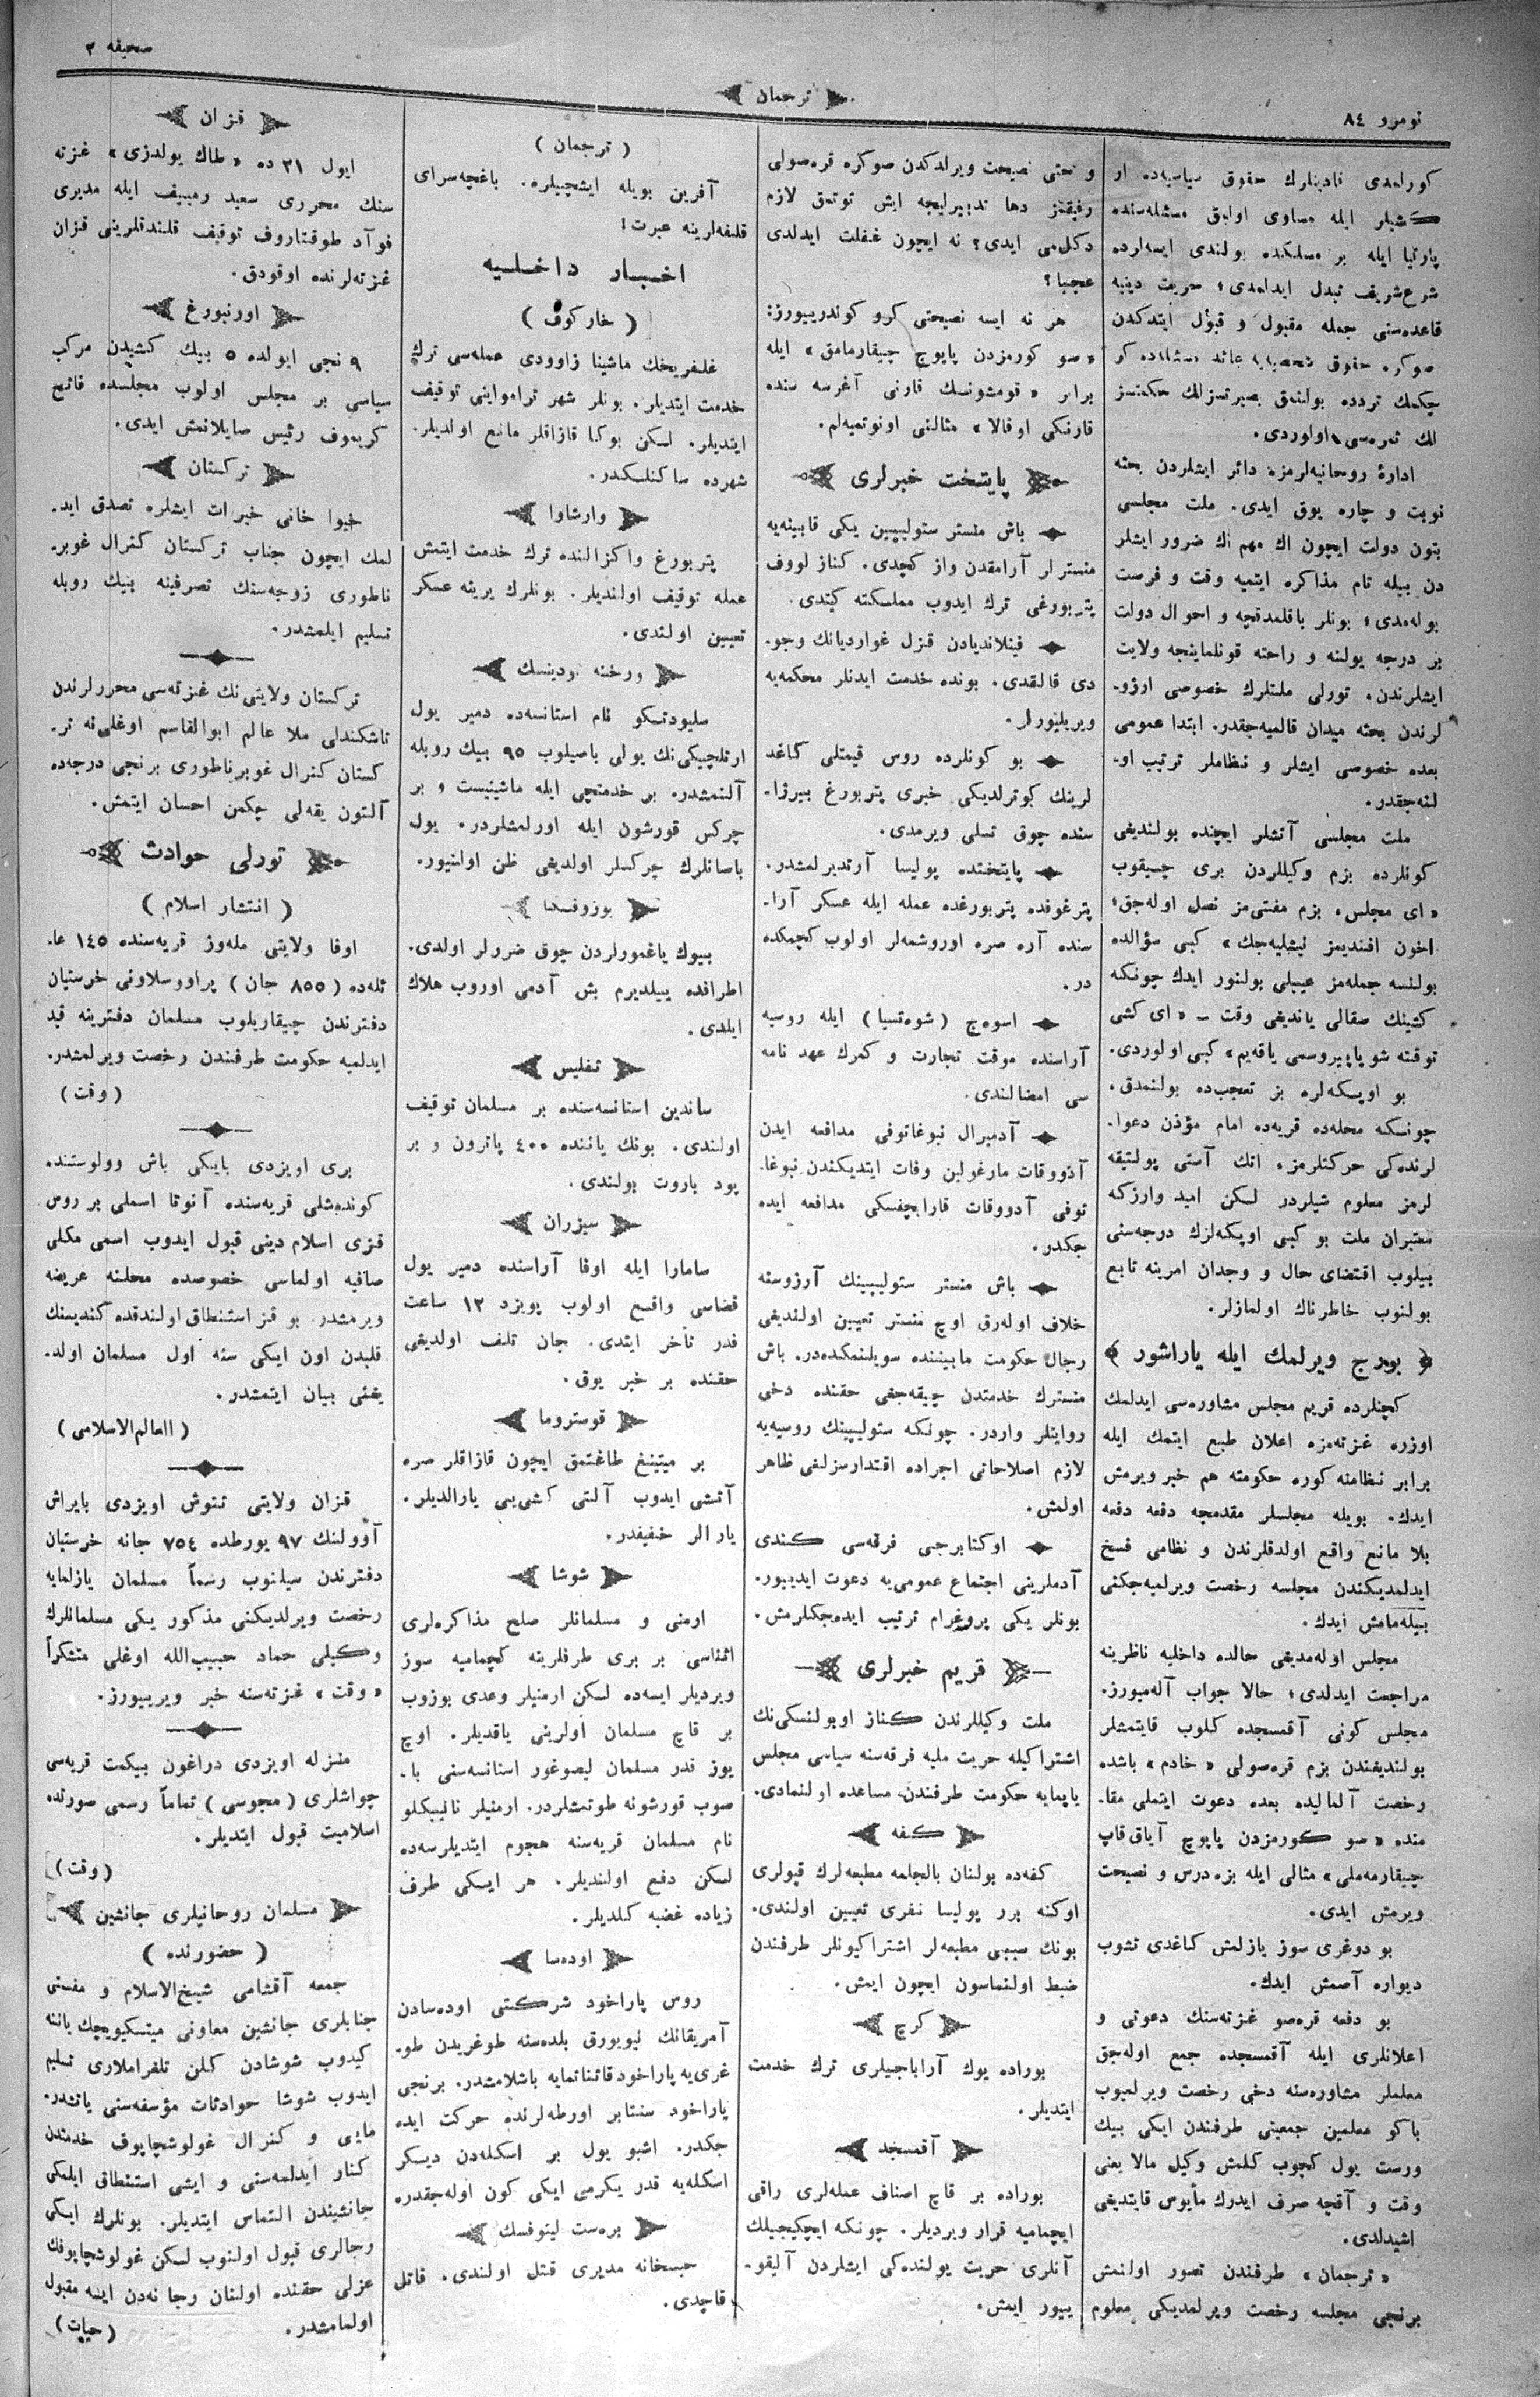 نومرو ٨٤
ترجمان
صحيفه ٢
كورلمدى قادينلرك حقوق سياسيه‌ده ار
كشيلر ايله مساوى اولمق مسئله‌سنده
پارتيا ايله بر مسلكده بولندى ايسه‌لرده
شرع شريف تبدل ايدلمدى؛ حريت دينيه
قاعده‌سنى جمله مقبول و قبول ايتدكدن
صوكره حقوق شخصيه‌يه عائد مسئله‌ده كر
چكمك تردده بولنمق بصيرتسزلك حكمتسز
لك ثمره‌سى اولوردى.
ادارۀ روحانيه‌لرمزه دائر ايشلردن بحثه
نوبت و چاره يوق ايدى. ملت مجلسى
بتون دولت ايچون اك مهم اك ضرور ايشلر
دن بيله تام مذاكره ايتميه وقت و فرصت
بوله‌مدى؛ بونلر باقلمدقچه و احوال دولت
بر درجه يولنه و راحته قونلماينجه ولايت
ايشلرندن، تورلى ملتلرك خصوصى ارزو-
لرندن بحثه ميدان قالميه‌جقدر. ابتدا عمومى
بعده خصوصى ايشلر و نظاملر ترتيب او-
لنه‌جقدر.
ملت مجلسى آتشلر ايچنده بولنديغى
كونلرده بزم وكيللردن برى چيقوب
«اى مجلس، بزم مفتى‌مز نصل اوله‌جق؛
اخون افنديمز نيشليه‌جك» كبى سؤالده
بولنسه جمله‌مز عيبلى بولنور ايدك چونكه
كشينك صقالى يانديغى وقت — «اى كشى
توقته شو پاپيروسمى ياقه‌يم» كبى اولوردى.
بو اوپكه‌لره بز تعجب‌ده بولنمدق،
چونكه محله‌ده قريه‌ده امام مؤذن دعوا-
لرنده‌كى حركتلرمز، اتك آستى پولتيقه
لرمز معلوم شيلردر لكن اميد وارزكه
معتبران ملت بو كبى اوپكه‌لرك درجه‌سنى
بيلوب اقتضاى حال و وجدان امرينه تابع
بولنوب خاطرناك اولمازلر.
﴿ بورج ويرلمك ايله ياراشور ﴾
كچنلرده قريم مجلس مشاوره‌سى ايدلمك
اوزره غزته‌مزه اعلان طبع ايتمك ايله
برابر نظامنه كوره حكومته هم خبر ويرمش
ايدك. بويله مجلسلر مقدمجه دفعه دفعه
بلا مانع واقع اولدقلرندن و نظامى فسخ
ايدلمديكندن مجلسه رخصت ويرلميه‌جكنى
بيله‌مامش ايدك.
مجلس اوله‌مديغى حالده داخليه ناظرينه
مراجعت ايدلدى؛ حالا جواب آله‌ميورز.
مجلس كونى آقمسجده كلوب قايتمشلر
بولنديغندن بزم قره‌صولى «خادم» باشده
رخصت آلماليده بعده دعوت ايتملى مقا-
منده «صو كورمزدن پاپوچ آياق قاپ
چيقارمه‌ملى» مثالى ايله بزه درس و نصيحت
ويرمش ايدى.
بو دوغرى سوز يازلمش كاغدى تشوب
ديواره آصمش ايدك.
بو دفعه قره‌صو غزته‌سنك دعوتى و
اعلانلرى ايله آقمسجده جمع اوله‌جق
معلملر مشاوره‌سنه دخى رخصت ويرلميوب
باكو معلمين جمعيتى طرفندن ايكى بيك
ورست يول كچوب كلمش وكيل مالا يعنى
وقت و آقچه صرف ايدرك مأيوس قايتديغى
اشيدلدى.
«ترجمان» طرفندن تصور اولنمش
برنجى مجلسه رخصت ويرلمديكى معلوم
و حتى نصيحت ويرلدكدن صوكره قره‌صولى
رفيقمز دها تدبيرليجه ايش توتمق لازم
دكلمى ايدى؟ نه ايچون غفلت ايدلدى
عجبا؟
هر نه ايسه نصيحتى كرو كوندريورز:
«صو كورمزدن پاپوچ چيقارمامق» ايله
برابر «قومشونسك قارنى آغرسه سنده
قارنكى اوقالا» مثالنى اونوتميه‌لم.
پايتخت خبرلرى
باش منستر ستوليپين يكى قابينه‌يه
منسترلر آرامقدن واز كچدى. كناز لووف
پتربورغى ترك ايدوب مملكتنه كيتدى.
فينلانديادن قزل غوارديانك وجو-
دى قالقدى. بونده خدمت ايدنلر محكمه‌يه
ويريليورلر.
بو كونلرده روس قيمتلى كاغد
لرينك كوترلديكى خبرى پتربورغ بيرژا-
سنده چوق تسلى ويرمدى.
پايتختده پوليسا آرتدبرلمشدر.
پترغوفده پتربورغده عمله ايله عسكر آرا-
سنده آره صره اوروشمه‌لر اولوب كچمكده
در.
اسوه‌ج (شوه‌تسيا) ايله روسيه
آراسنده موقت تجارت و كمرك عهد نامه
سى امضالندى.
آدميرال نبوغاتوفى مدافعه ايدن
آذووقات مارغولين وفات ايتديكندن نبوغا-
توفى آدووقات قارابچفسكى مدافعه ايده
جكدر.
باش منستر ستوليپينك آرزوسنه
خلاف اوله‌رق اوچ منستر تعيين اولنديغى
رجال حكومت مابيننده سويلنمكده‌در. باش
منسترك خدمتدن چيقه‌جغى حقنده دخى
روايتلر واردر. چونكه ستوليپينك روسيه‌يه
لازم اصلاحاتى اجراده اقتدارسزلغى ظاهر
اولمش.
اوكتابرجى فرقه‌سى كندى
آدملرينى اجتماع عمومى‌يه دعوت ايديبور.
بونلر يكى پروغرام ترتيب ايده‌جكلرمش.
قريم خبرلرى
ملت وكيللرندن كناز اوبولنسكى‌نك
اشتراكيله حريت مليه فرقه‌سنه سياسى مجلس
ياپمايه حكومت طرفندن مساعده اولنمادى.
كفه
كفه‌ده بولنان بالجلمه مطبعه‌لرك قپولرى
اوكنه برر پوليسا نفرى تعيين اولندى.
بونك سببى مطبعه‌لر اشتراكيونلر طرفندن
ضبط اولنماسون ايچون ايمش.
كرچ
بوراده يوك آراباجيلرى ترك خدمت
ايتديلر.
آقمسجد
بوراده بر قاچ اصناف عمله‌لرى راقى
ايچماميه قرار ويرديلر. چونكه ايچكيجيلك
آنلرى حريت يولنده‌كى ايشلردن آليقو-
ييور ايمش.
(ترجمان)
آفرين بويله ايشچيلره. باغچه‌سراى
قلفه‌لرينه عبرت!
اخبار داخليه
(خاركوف)
غلفريخك ماشينا زاوودى عمله‌سى ترك
خدمت ايتديلر. بونلر شهر تراموايني توقيف
ايتديلر. لكن بوكا قازاقلر مانع اولديلر.
شهرده ساكنلكدر.
وارشاوا
پتربورغ واكزالنده ترك خدمت ايتمش
عمله توقيف اولنديلر. بونلرك يرينه عسكر
تعيين اولندى.
ورخنه ودينسك
سليودتسكو نام استانسه‌ده دمير يول
ارتلچيكى‌نك يولى باصيلوب ٩٥ بيك روبله
آلنمشدر. بر خدمتچى ايله ماشينيست و بر
چركس قورشون ايله اورلمشلردر. يول
باصانلرك چركسلر اولديغى ظن اولنيور.
بوزوفكا
بيوك ياغمورلردن چوق ضررلر اولدى.
اطرافده ييلديرم بش آدمى اوروب هلاك
ايلدى.
تفليس
ساندين استانسه‌سنده بر مسلمان توقيف
اولندى. بونك ياننده ٤٠٠ پاترون و بر
پود باروت بولندى.
سيزران
سامارا ايله اوفا آراسنده دمير يول
قضاسى واقع اولوب پويزد ١٢ ساعت
قدر تأخر ايتدى. جان تلف اولديغى
حقنده بر خبر يوق.
قوستروما
بر ميتينغ طاغتمق ايچون قازاقلر صره
آتشى ايدوب آلتى كشى‌يى يارالديلر.
يارالر خفيفدر.
شوشا
ارمنى و مسلمانلر صلح مذاكره‌لرى
اثناسى بر برى طرفلرينه كچماميه سوز
ويرديلر ايسه‌ده لكن ارمنيلر وعدى بوزوب
بر قاچ مسلمان اولرينى ياقديلر. اوچ
يوز قدر مسلمان ليصوغور استانسه‌سنى با-
صوب قورشونه طوتمشلردر. ارمنيلر نالبيكلو
نام مسلمان قريه‌سنه هجوم ايتديلرسه‌ده
لكن دفع اولنديلر. هر ايكى طرف
زياده غضبه كلديلر.
اوده‌سا
روس پاراخود شركتى اوده‌سادن
آمريقانك نيويورق بلده‌سنه طوغريدن طو-
غرى‌يه پاراخود قاتناتمايه باشلامشدر. برنجى
پاراخود سنتابر اورطه‌لرنده حركت ايده
جكدر. اشبو يول بر اسكله‌دن ديكر
اسكله‌يه قدر يكرمى ايكى كون اوله‌جقدر.
بره‌ست ليتوفسك
حبسخانه مديرى قتل اولندى. قاتل
قاچدى.
قزان
ايول ٢١ ده «طاك يولدزى» غزته
سنك محررى سعيد رميف ايله مديرى
فوآد طوقتاروف توقيف قلندقلرينى قزان
غزته‌لرنده اوقودق.
اورنبورغ
٩ نجى ايولده ٥ بيك كشيدن مركب
سياسى بر مجلس اولوب مجلسده فاتح
كريموف رئيس صايلانمش ايدى.
تركستان
خيوا خانى خيرات ايشلره تصدق ايد-
لمك ايچون جناب تركستان كنرال غوبر-
ناطورى زوجه‌سنك تصرفينه بيك روبله
تسليم ايلمشدر.
تركستان ولايتى‌نك غزته‌سى محررلرندن
تاشكندلى ملا عالم ابوالقاسم اوغلى‌نه تر-
كستان كنرال غوبرناطورى برنجى درجه‌ده
آلتون يقه‌لى چكمن احسان ايتمش.
تورلى حوادث
(انتشار اسلام)
اوفا ولايتى مله‌وز قريه‌سنده ١٤٥ عا-
ئله‌ده (٨٥٥ جان) پراووسلاونى خرستيان
دفترندن چيقاريلوب مسلمان دفترينه قيد
ايدلميه حكومت طرفندن رخصت ويرلمشدر.
(وقت)
برى اويزدى بايكى باش وولوستنده
كونده‌شلى قريه‌سنده آنوتا اسملى بر روس
قزى اسلام دينى قبول ايدوب اسمى مكلى
صافيه اولماسى خصوصده محلنه عريضه
ويرمشدر. بو قز استنطاق اولندقده كنديسنك
قلبدن اون ايكى سنه اول مسلمان اولد-
يغنى بيان ايتمشدر.
(العالم الاسلامى)
قزان ولايتى تتوش اويزدى بايراش
آوولنك ٩٧ يورطده ٧٥٤ جانه خرستيان
دفترندن سيلنوب رسماً مسلمان يازلمايه
رخصت ويرلديكنى مذكور يكى مسلمانلرك
وكيلى حماد حبيب‌الله اوغلى متشكراً
«وقت» غزته‌سنه خبر ويريبورز.
منزله اويزدى دراغون بيكمت قريه‌سى
چواشلرى (مجوسى) تماماً رسمى صورتده
اسلاميت قبول ايتديلر.
(وقت)
مسلمان روحانيلرى جانشين
(حضورنده)
جمعه آقشامى شيخ‌الاسلام و مفتى
جنابلرى جانشين معاونى ميتسكيويچك ياننه
كيدوب شوشادن كلن تلغراملارى تسليم
ايدوب شوشا حوادثات مؤسفه‌سنى ياتشدر-
مايى و كنرال غولوشچاپوف خدمتدن
كنار ايدلمه‌سنى و ايشى استنطاق ايلمكى
جانشيندن التماس ايتديلر. بونلرك ايكى
رجالرى قبول اولنوب لكن غولوشچاپوفك
عزلى حقنده اولنان رجا نه‌دن ايسه مقبول
اولمامشدر. (حيات)